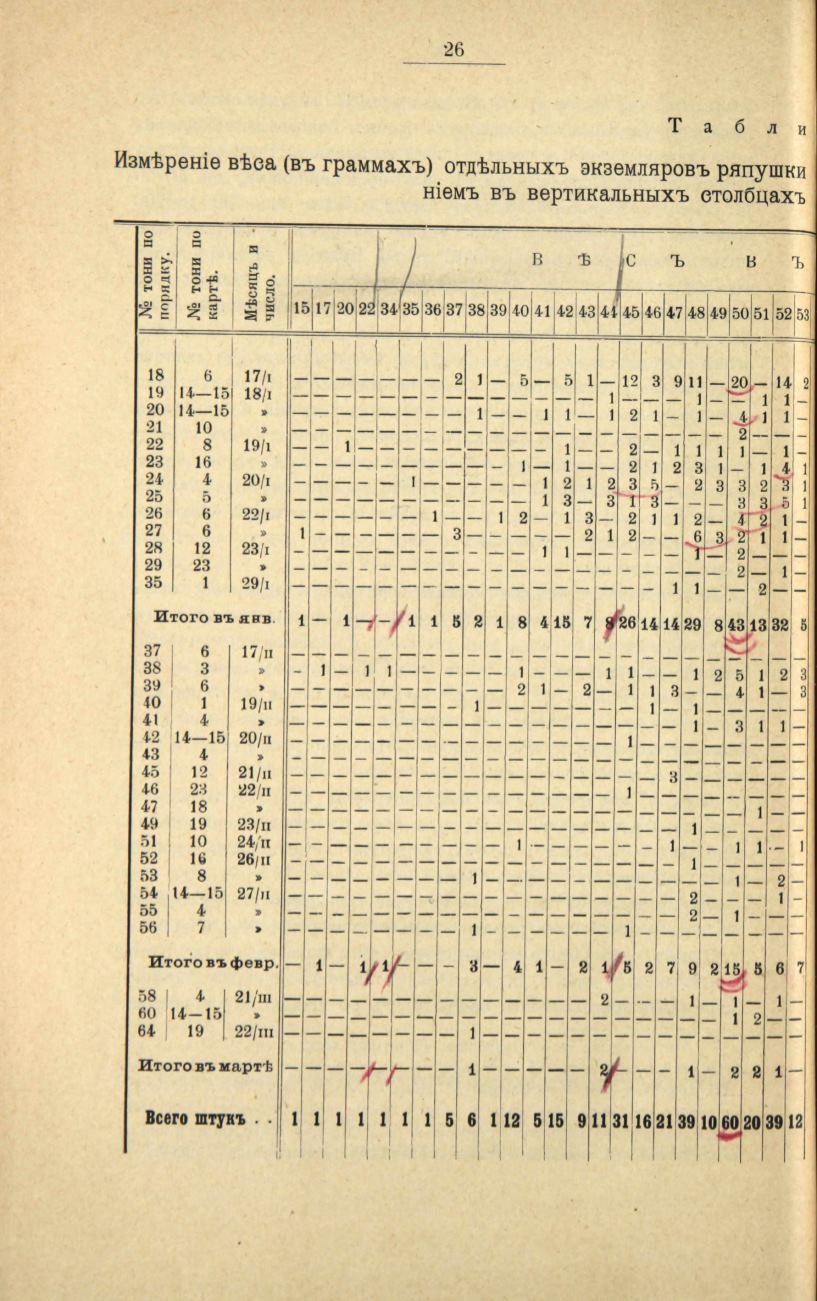 26
Табли
Измѣреніе вѣса (въ граммахъ) отдѣльныхъ экземляровъ ряпушки
ніемъ въ вертикальныхъ столбцахъ
№ тони по порядку.
№ тони по картѣ.
Мѣсяцъ и число.
В Ѣ С Ъ В Ъ
15 17 20 22 34 35 36 37 38 39 40 41 42 43 44 45 46 47 48 49 50 51 52 53
18 6 17/I — — — — — — — 2 1 — 5 — 5 1 — 12 3 9 11 — 20 — 14 2
19 14—15 18/I — — — — — — — — — — — — — — 1 — — — 1 — — 1 1 —
20 14—15 » — — — — — — — — 1 — — 1 1 — 1 2 1 — 1 — 4 1 1 —
21 10 » — — — — — — — — — — — — — — — — — — — — 2 — — —
22 8 19/I — — 1 — — — — — — — — — 1 — — 2 — 1 1 1 1 — 1 —
23 16 » — — — — — — — — — — 1 — 1 — — 2 1 2 3 1 — 1 4 1
24 4 20/I — — — — — 1 — — — — — 1 2 1 2 3 5 — 2 3 3 2 3 1
25 5 » — — — — — — — — — — — 1 3 — 3 1 3 — — — 3 3 5 1
26 6 22/I — — — — — — 1 — — 1 2 — 1 3 — 2 1 1 2 — 4 2 1 —
27 6 » 1 — — — — — — 3 — — — — — 2 1 2 — — 6 3 2 1 1 —
28 12 23/I — — — — — — — — — — — 1 1 — — — — — 1 — 2 — — —
29 23 » — — — — — — — — — — — — — — — — — — — — 2 — 1 —
35 1 29/I — — — — — — — — — — — — — — — — — 1 1 — — 2 — —
Итого въ янв. 1 — 1 — — 1 1 5 2 1 8 4 15 7 8 26 14 14 29 8 43 13 32 5
37 6 17/II — — — — — — — — — — — — — — — — — — — — — — — —
38 3 » — 1 — 1 1 — — — — — 1 — — — 1 1 — — 1 2 5 1 2 3
39 6 » — — — — — — — — — — 2 1 — 2 — 1 1 3 — — 4 1 — 3
40 1 19/II — — — — — — — — 1 — — — — — — — 1 — 1 — — — — —
41 4 » — — — — — — — — — — — — — — — — — — 1 — 3 1 1 —
42 14—15 20/II — — — — — — — — — — — — — — — 1 — — — — — — — —
43 4 » — — — — — — — — — — — — — — — — — — — — — — — —
45 12 21/II — — — — — — — — — — — — — — — — — 3 — — — — — —
46 23 22/II — — — — — — — — — — — — — — — 1 — — — — — — — —
47 18 » — — — — — — — — — — — — — — — — — — — — — 1 — —
49 19 23/II — — — — — — — — — — — — — — — — — — 1 — — — — —
51 10 24/II — — — — — — — — — — 1 — — — — — — 1 — — 1 1 — 1
52 16 26/II — — — — — — — — — — — — — — — — — — 1 — — — — —
53 8 » — — — — — — — — 1 — — — — — — — — — — — 1 — 2 —
54 14—15 27/II — — — — — — — — — — — — — — — — — — 2 — — — 1 —
55 4 » — — — — — — — — — — — — — — — — — — 2 — 1 — — —
56 7 » — — — — — — — — 1 — — — — — — 1 — — — — — — — —
Итого въ февр. — 1 — 1 1 — — — 3 — 4 1 — 2 1 5 2 7 9 2 15 5 6 7
58 4 21/III — — — — — — — — — — — — — — 2 — — — 1 — 1 — 1 —
60 14—15 » — — — — — — — — — — — — — — — — — — — — 1 2 — —
64 19 22/III — — — — — — — — 1 — — — — — — — — — — — — — — —
Итого въ мартѣ — — — — — — — — 1 — — — — — 2 — — — 1 — 2 2 1 —
Всего штукъ . . 1 1 1 1 1 1 1 5 6 1 12 5 15 9 11 31 16 21 39 10 60 20 39 12